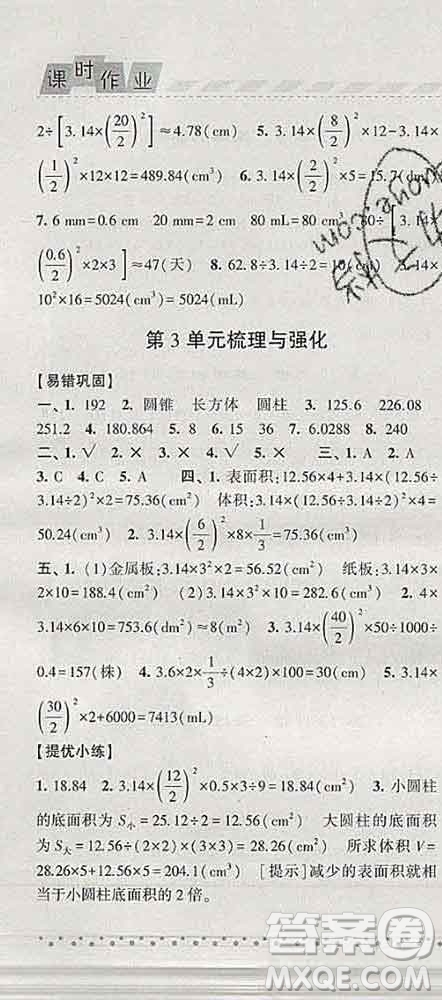 课时作业
2÷[3.14×(20/2)²]≈4.78(cm) 5. 3.14×(8/2)²×12-3.14×
(1/2)²×12×12=489.84(cm³) 6. 3.14×(2/2)²×5=15.7(dm³)
7. 6 mm=0.6 cm 20 mm=2 cm 80 mL=80 cm³ 80÷[3.14×
(0.6/2)²×2×3]≈47(天) 8. 62.8÷3.14÷2=10(cm) 3.14×
10²×16=5024(cm³)=5024(mL)
第3单元梳理与强化
【易错巩固】
一、1. 192 2. 圆锥 长方体 圆柱 3. 125.6 226.08
251.2 4. 180.864 5. 8 15 36 7 6. 6.0288 8. 240
二、1. √ 2. × 3. × 4. × 5. √
3. C 4. C 5. A 四、1. 表面积：12.56×4+3.14×(12.56÷
3.14÷2)²×2=75.36(cm²) 体积：3.14×(12.56÷3.14÷2)²×4=
50.24(cm³) 2. 3.14×(6/2)²×8×1/3=75.36(cm³)
五、1. (1)金属板：3.14×3²×2=56.52(cm²) 纸板：3.14×3×
2×10=188.4(cm²) (2)3.14×3²×10=282.6(cm³) 2. 4×
3.14×6×10=753.6(dm²)≈8(m²) 3. 3.14×(40/2)²×50÷1000÷
0.4=157(株) 4. 3.6×2×1/3÷(4×2)×100=30(cm) 5. 3.14×
(30/2)²×2+6000=7413(mL)
【提优小练】
1. 18.84 2. 3.14×(12/2)²×0.5×3÷9=18.84(cm²) 3. 小圆柱
的底面积为S小=25.12÷2=12.56(cm²) 大圆柱的底面积
为S大=12.56÷(2×2)×(3×3)=28.26(cm²) 所求体积V=
28.26×5+12.56×5=204.1(cm³) [提示]减少的表面积就相
当于小圆柱底面积的2倍。
答案圈
MXQE.COM